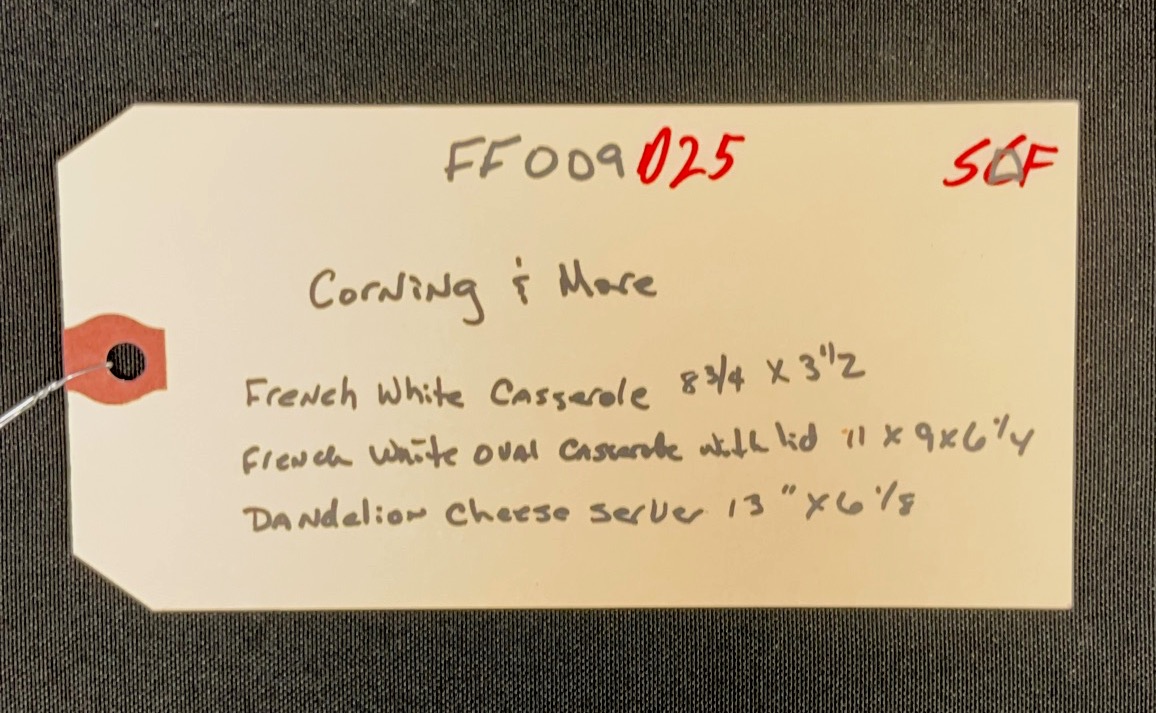 FF009025 SCF
Corning & More
French White Casserole 8 3/4 x 3 1/2
French White oval Casserole with lid 11 x 9 x 6 1/4
Dandelion Cheese server 13" x 6 1/8